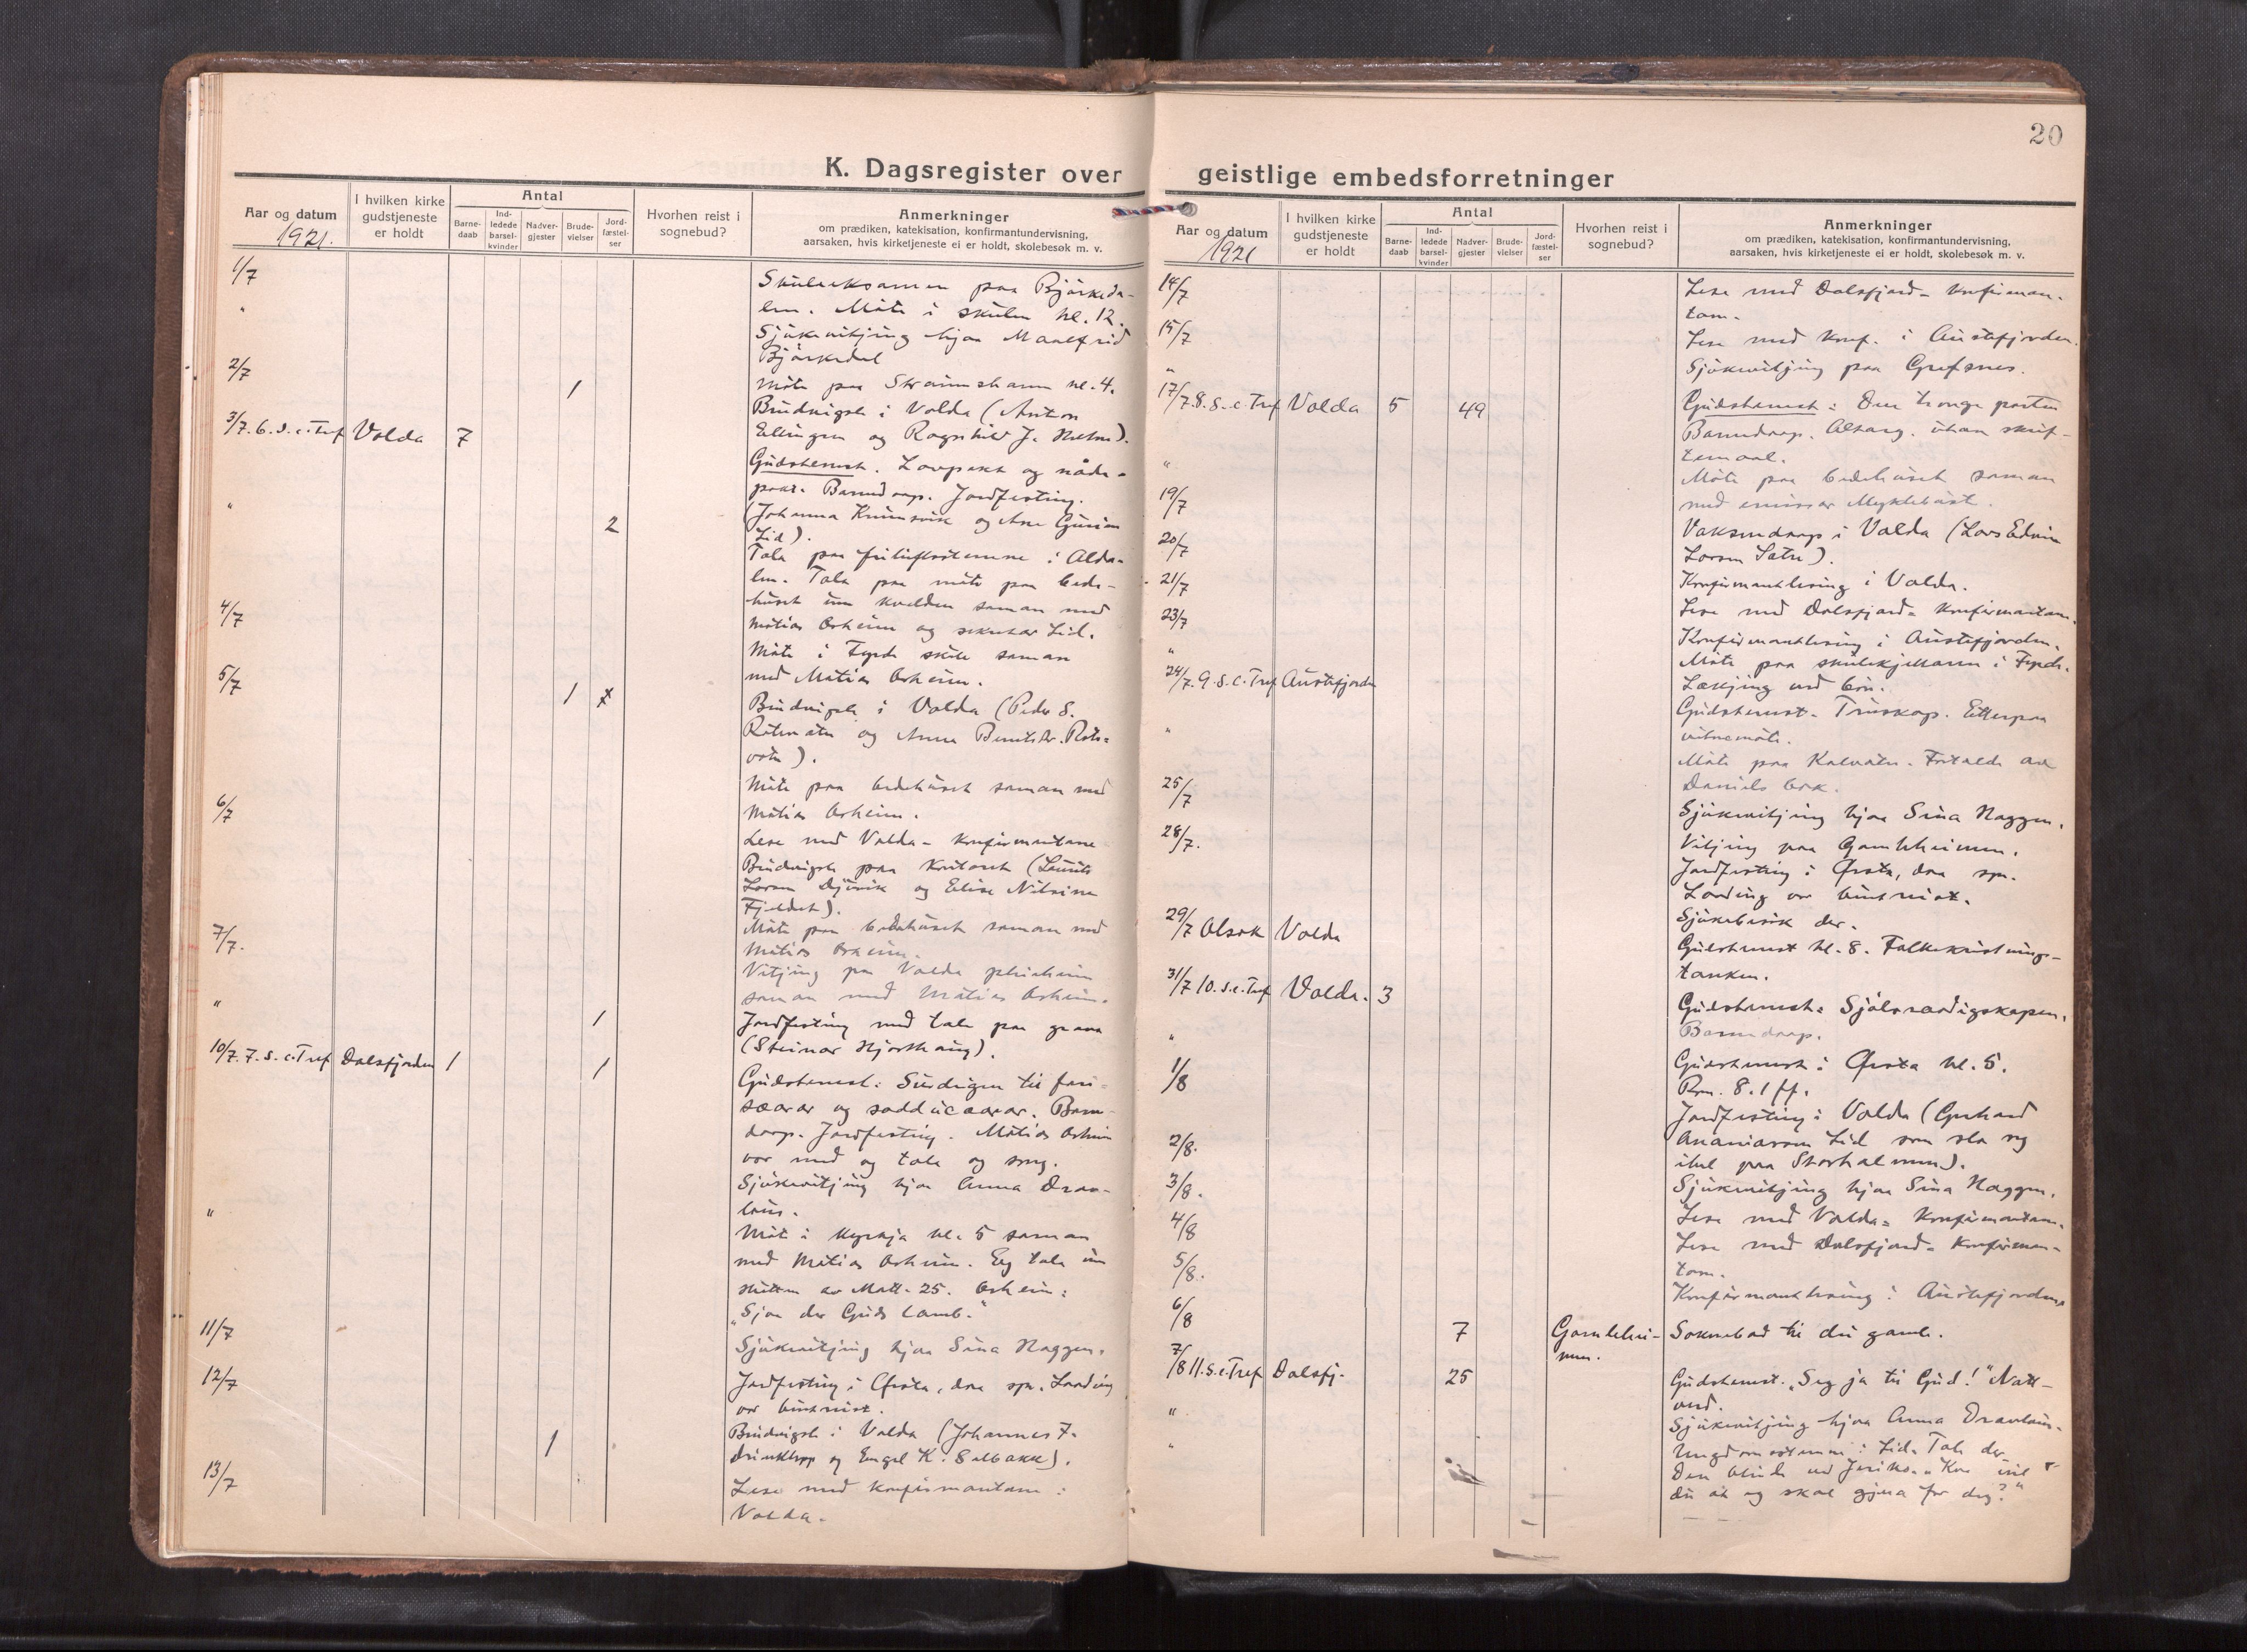 20
K. Dagsregister over
Aar og datum
1921.
I hvilken kirke
gudstjeneste
er holdt
Antal
Barne-
daab
Ind-
ledede
barsel-
kvinder
Nadver-
gjester
Brude-
vielser
Jord-
fæstel-
ser
Hvorhen reist i
sognebud?
Anmerkninger
om prædiken, katekisation, konfirmantundervisning,
aarsaken, hvis kirketjeneste ei er holdt, skolebesøk m. v.
1/7 Skuleeksamen paa Bjørkeda-
" len. Møte i skulen kl. 12.
Sjukevitjing hjaa Maalfrid
Bjørkedal
2/7 1 Møte paa Straumshamn kl. 4.
Brudvigsle i Volda (Anton
Ellingsen og Ragnhild J.
3/7. 6. s. e. Tref Volda 7
Gudstenest. Lovpakt og nåde-
pakt. Barnedaap. Jordfesting.
" 2 (Johanna og Ane
Lid).
Tala paa friluftsstemne i
len. Tala paa møte paa bede-
huset um kvelden saman med
4/7 Matias Orheim og sekretær Lid.
Møte i Fyrde skule saman
med Matias Orheim.
5/7 1 Brudvigsle i Volda (Peder S.
Rotevatn og Anna Rote-
vatn).
Møte paa bedehuset saman med
Matias Orheim.
6/7 Lese med Volda-konfirmantane
Brudvigsle paa kontoret (Laurits
Larsen og Elise Nilsine
Fjeldet).
Møte paa bedehuset saman med
7/7. Matias Orheim.
Vitjing paa Volda pleieheim
saman med Matias Orheim.
" 1 Jordfesting med tale paa grava
(Steinar Hjorthaug).
10/7. 7. s. e. Tref Dalsfjorden 1 1
Gudstenest: Surdeigen til fari-
sæarar og sadducæarar. Barne-
daap. Jordfesting. Matias Orheim
var med og tala og song.
Sjukevitjing hjaa Anna Drav-
laus.
" Møte i kyrkja kl. 5 saman
med Matias Orheim. Eg tala um
slutten av Matt. 25. Orheim:
„Sjaa der Guds Lamb."
11/7 Sjukevitjing hjaa Sina Haggen.
12/7 Jordfesting i Ørsta, daa spr. Laading
var burtreist.
1 Brudvigsle i Volda (Johannes F.
og Engel K.
13/7 Lese med konfirmantane i
Volda.
geistlige embedsforretninger
Aar og datum
1921
I hvilken kirke
gudstjeneste
er holdt
Antal
Barne-
daab
Ind-
ledede
barsel-
kvinder
Nadver-
gjester
Brude-
vielser
Jord-
fæstel-
ser
Hvorhen reist i
sognebud?
Anmerkninger
om prædiken, katekisation, konfirmantundervisning,
aarsaken, hvis kirketjeneste ei er holdt, skolebesøk m. v.
14/7 Lese med Dalsfjord-konfirman-
tane.
15/7 Lese med konf. i Austefjorden.
" Sjukevitjing paa Grefsnes.
17/7. 8. s. e. Tref Volda 5 49 Gudstenest: Den tronge porten
Barnedaap. Altarg. utan skrif-
temaal.
" Møte paa bedehuset saman
med emissær Myklebust.
19/7 Vaksendaap i Volda (Lars Edvin
Larsen Sætre).
20/7 Konfirmantlesing i Volda.
21/7 Lese med Dalsfjord-konfirmantane.
23/7 Konfirmantlesing i Austefjorden.
" Møte paa skulekjellaren i Fyrde.
Lækjing ved bøn.
24/7. 9. s. e. Tref Austefjorden Gudstenest. Truskap. Etterpaa
vitnemøte.
" Møte paa Kalvatn. Fortalde av
Daniels bok.
25/7 Sjukevitjing hjaa Sina Haggen.
Vitjing paa Gamleheimen.
28/7. Jordfesting i Ørsta, daa spr.
Laading var burtreist.
Sjukebesøk der.
29/7 Olsok Volda Gudstenest kl. 8. Folkekristnings-
tanken.
31/7 10. s. e. Tref Volda. 3 Gudstenest: Sjølvraadigskapen.
Barnedaap.
" Gudstenest i Ørsta kl. 5.
Rom. 8. 1 ff.
1/8 Jordfesting i Volda (Gerhard
Ananiassen Lid som slo seg
ihel paa
2/8. Sjukevitjing hjaa Sina Haggen.
3/8. Lese med Volda-konfirmantane.
4/8 Lese med Dalsfjord-konfirman-
tane.
5/8. Konfirmantlesing i Austefjorden.
6/8 7 Gamlehei-
men. Soknebod til dei gamle.
7/8 11. s. e. Tref Dalsfj. 25 Gudstenest. „Seg ja til Gud!" Natt-
verd.
" Sjukevitjing hjaa Anna Dravlaus.
" Ungdomsstemne i Lid. Tale der
Den blinde ved Jeriko. „Kva vil
du at eg skal gjera for deg?"